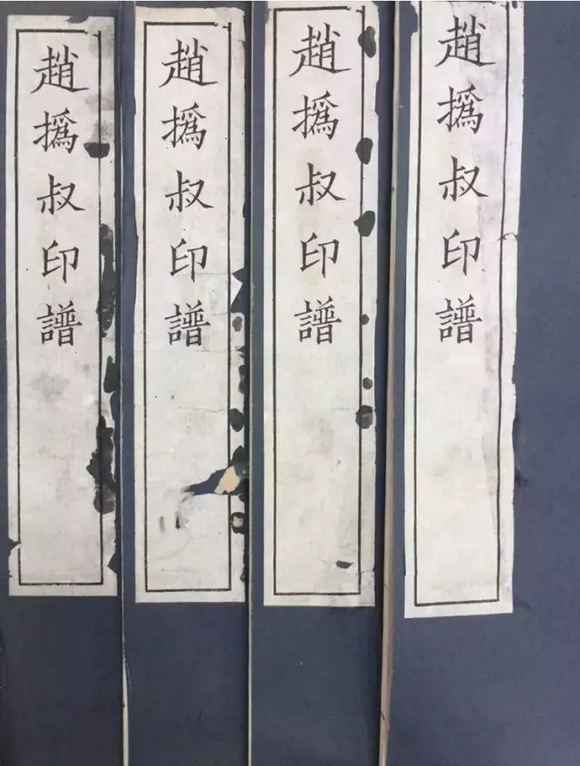 趙撝叔印譜
趙撝叔印譜
趙撝叔印譜
趙撝叔印譜